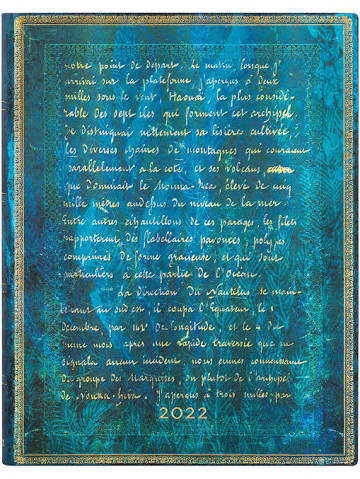 notre point de départ. Le matin lorsque j'
arrivai sur la plateforme j'aperçus à deux
milles sous le vent, Haouaï la plus considé-
rable des sept îles qui forment cet archipel.
Je distinguai nettement sa lisière cultivée,
les diverses chaînes de montagnes qui courent
parallèlement à la côte, et ses volcans
que dominait le Mouna-Rea, élevé de cinq
mille mètres au dessus du niveau de la mer.
Entre autres échantillons de ces parages les filets
rapportèrent des flabellaires pavonées, polypes
comprimés de forme gracieuse, et qui sont
particuliers à cette partie de l'Océan.
La direction du Nautilus se main-
tenant au sud est, il coupa l'Equateur, le 1
décembre, par 142° de longitude, et le 4 du
même mois, après une rapide traversée que ne
signala aucun incident, nous eûmes connaissance
du groupe des Marquises, ou plutôt de l'archipel
de Nouka-hiva. J'aperçus à trois milles par
2022